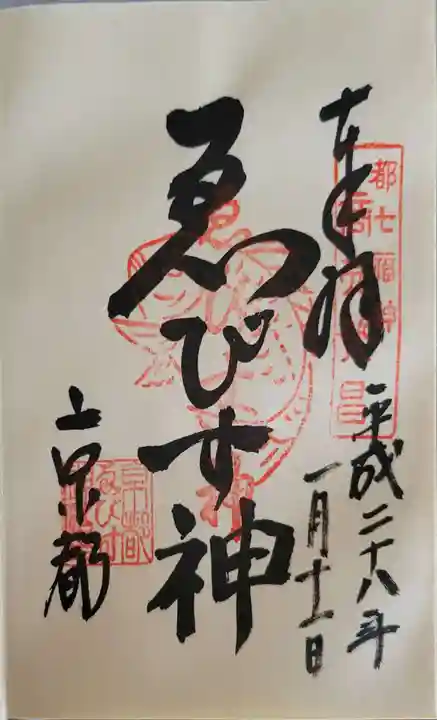 奉拝
平成二十八年
一月十一日
ゑびす神
京都
都七福神